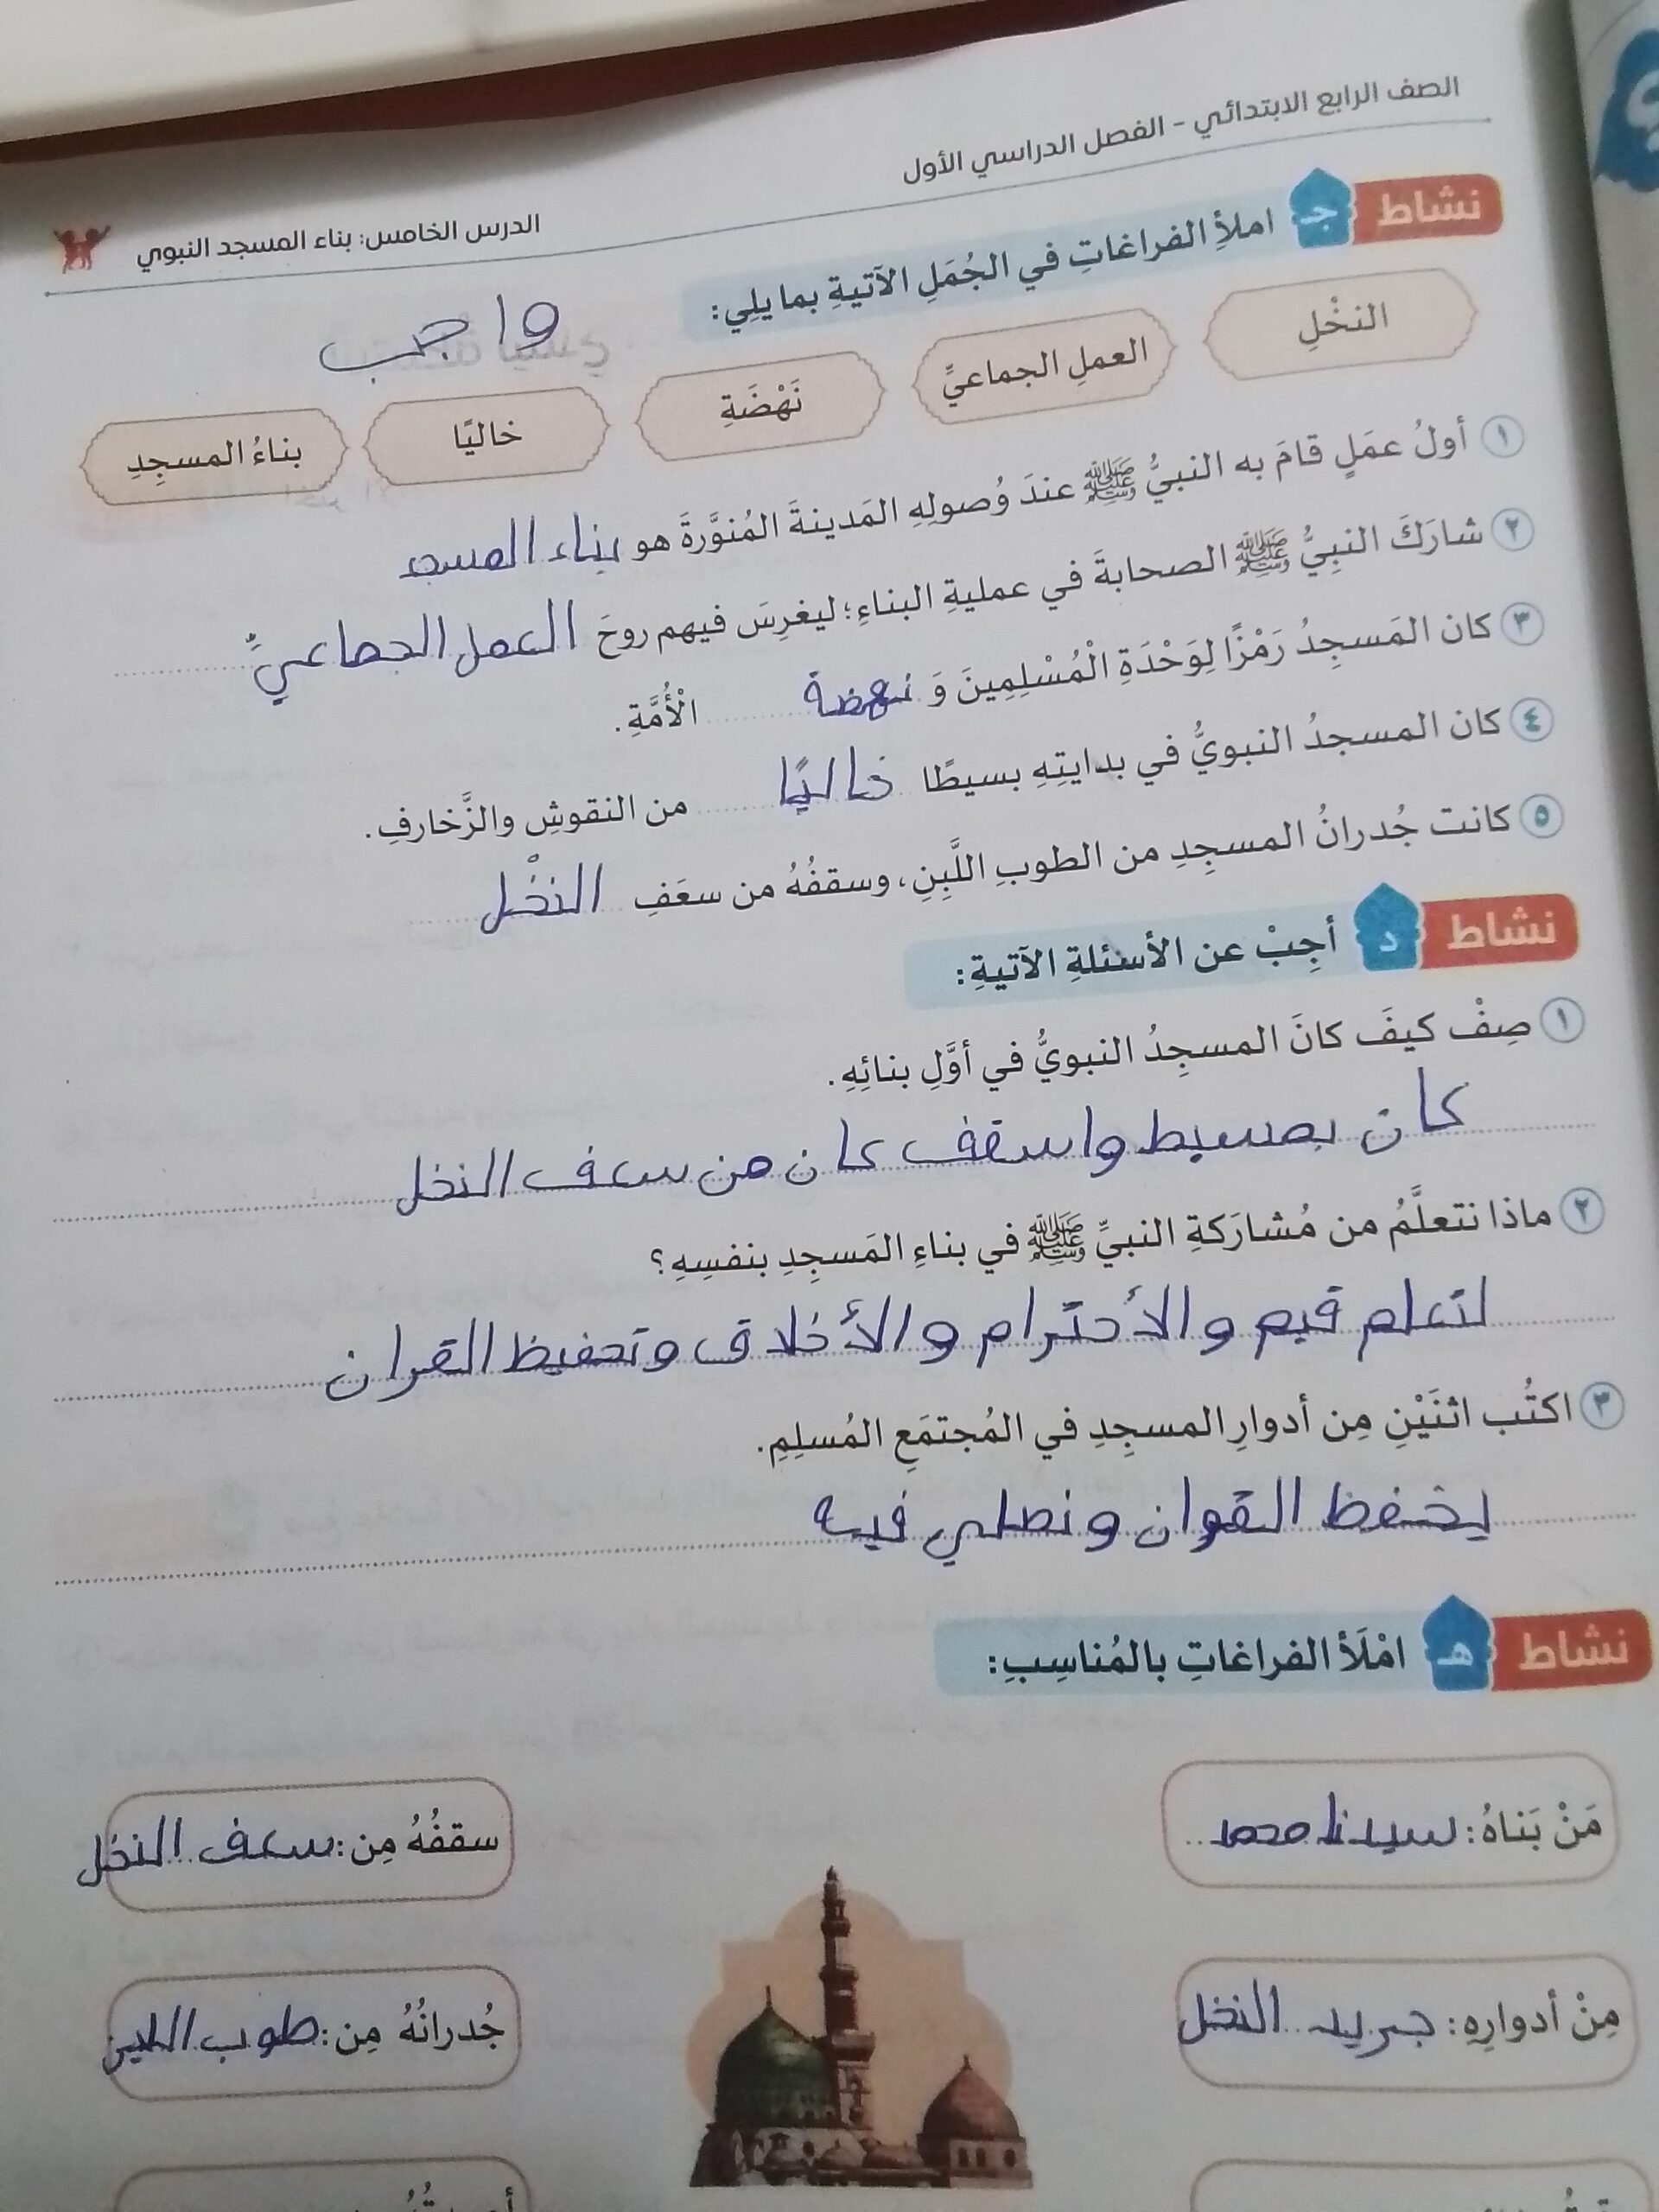 الصف الرابع الابتدائي - الفصل الدراسي الأول
الدرس الخامس: بناء المسجد النبوي
نشاط ج املأِ الفراغاتِ في الجُمَلِ الآتيةِ بما يلِي:
واجب
النخْلِ
العملِ الجماعيِّ
نَهْضَةِ
خاليًا
بناءُ المسجِدِ
١ أولُ عمَلٍ قامَ به النبيُّ ﷺ عندَ وُصولِهِ المَدينةَ المُنوَّرةَ هو بناء المسجد
٢ شارَكَ النبِيُّ ﷺ الصحابةَ في عمليةِ البناءِ؛ ليغرِسَ فيهم روحَ العمل الجماعيِّ
٣ كان المَسجِدُ رَمْزًا لِوَحْدَةِ الْمُسْلِمِينَ وَ نهضة الْأُمَّةِ.
٤ كان المسجدُ النبويُّ في بدايتِهِ بسيطًا خاليًا من النقوشِ والزَّخارفِ.
٥ كانت جُدرانُ المسجِدِ من الطوبِ اللَّبِنِ، وسقفُهُ من سعَفِ النخْل
نشاط د أجِبْ عن الأسئلةِ الآتيةِ:
١ صِفْ كيفَ كانَ المسجِدُ النبويُّ في أوَّلِ بنائِهِ.
كان بصسيط واسقف كان من سعف النخل
٢ ماذا نتعلَّمُ من مُشارَكةِ النبيِّ ﷺ في بناءِ المَسجِدِ بنفسِهِ؟
لتعلم قيم والأحترام والأخلاق وتحفيظ القران
٣ اكتُب اثنَيْنِ مِن أدوارِ المسجِدِ في المُجتمَعِ المُسلِمِ.
يخفظ القران ونصلي فيه
نشاط هـ امْلَأ الفراغاتِ بالمُناسِبِ:
مَنْ بَناهُ: سيدنا محمد
سقفُهُ مِن: سعف النخل
مِنْ أدوارِهِ: جريد النخل
جُدرانُهُ مِن: طوب اللبن